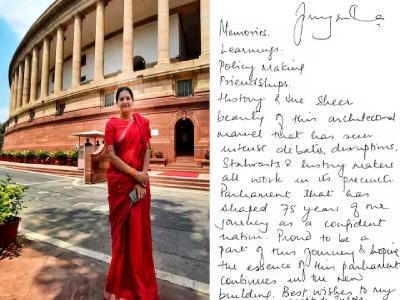 Memories.
Learnings.
Policy Making
Friendships.
History & the Sheer
beauty of this architectural
marvel that has seen
intense debates, disruptions.
Stalwarts & history makers
all work in its precincts.
Parliament that has
shaped 75 years of our
journey as a confident
nation. Proud to be a
part of this journey & hoping
the essence of this parliament
continues in the new
building. Best wishes to my